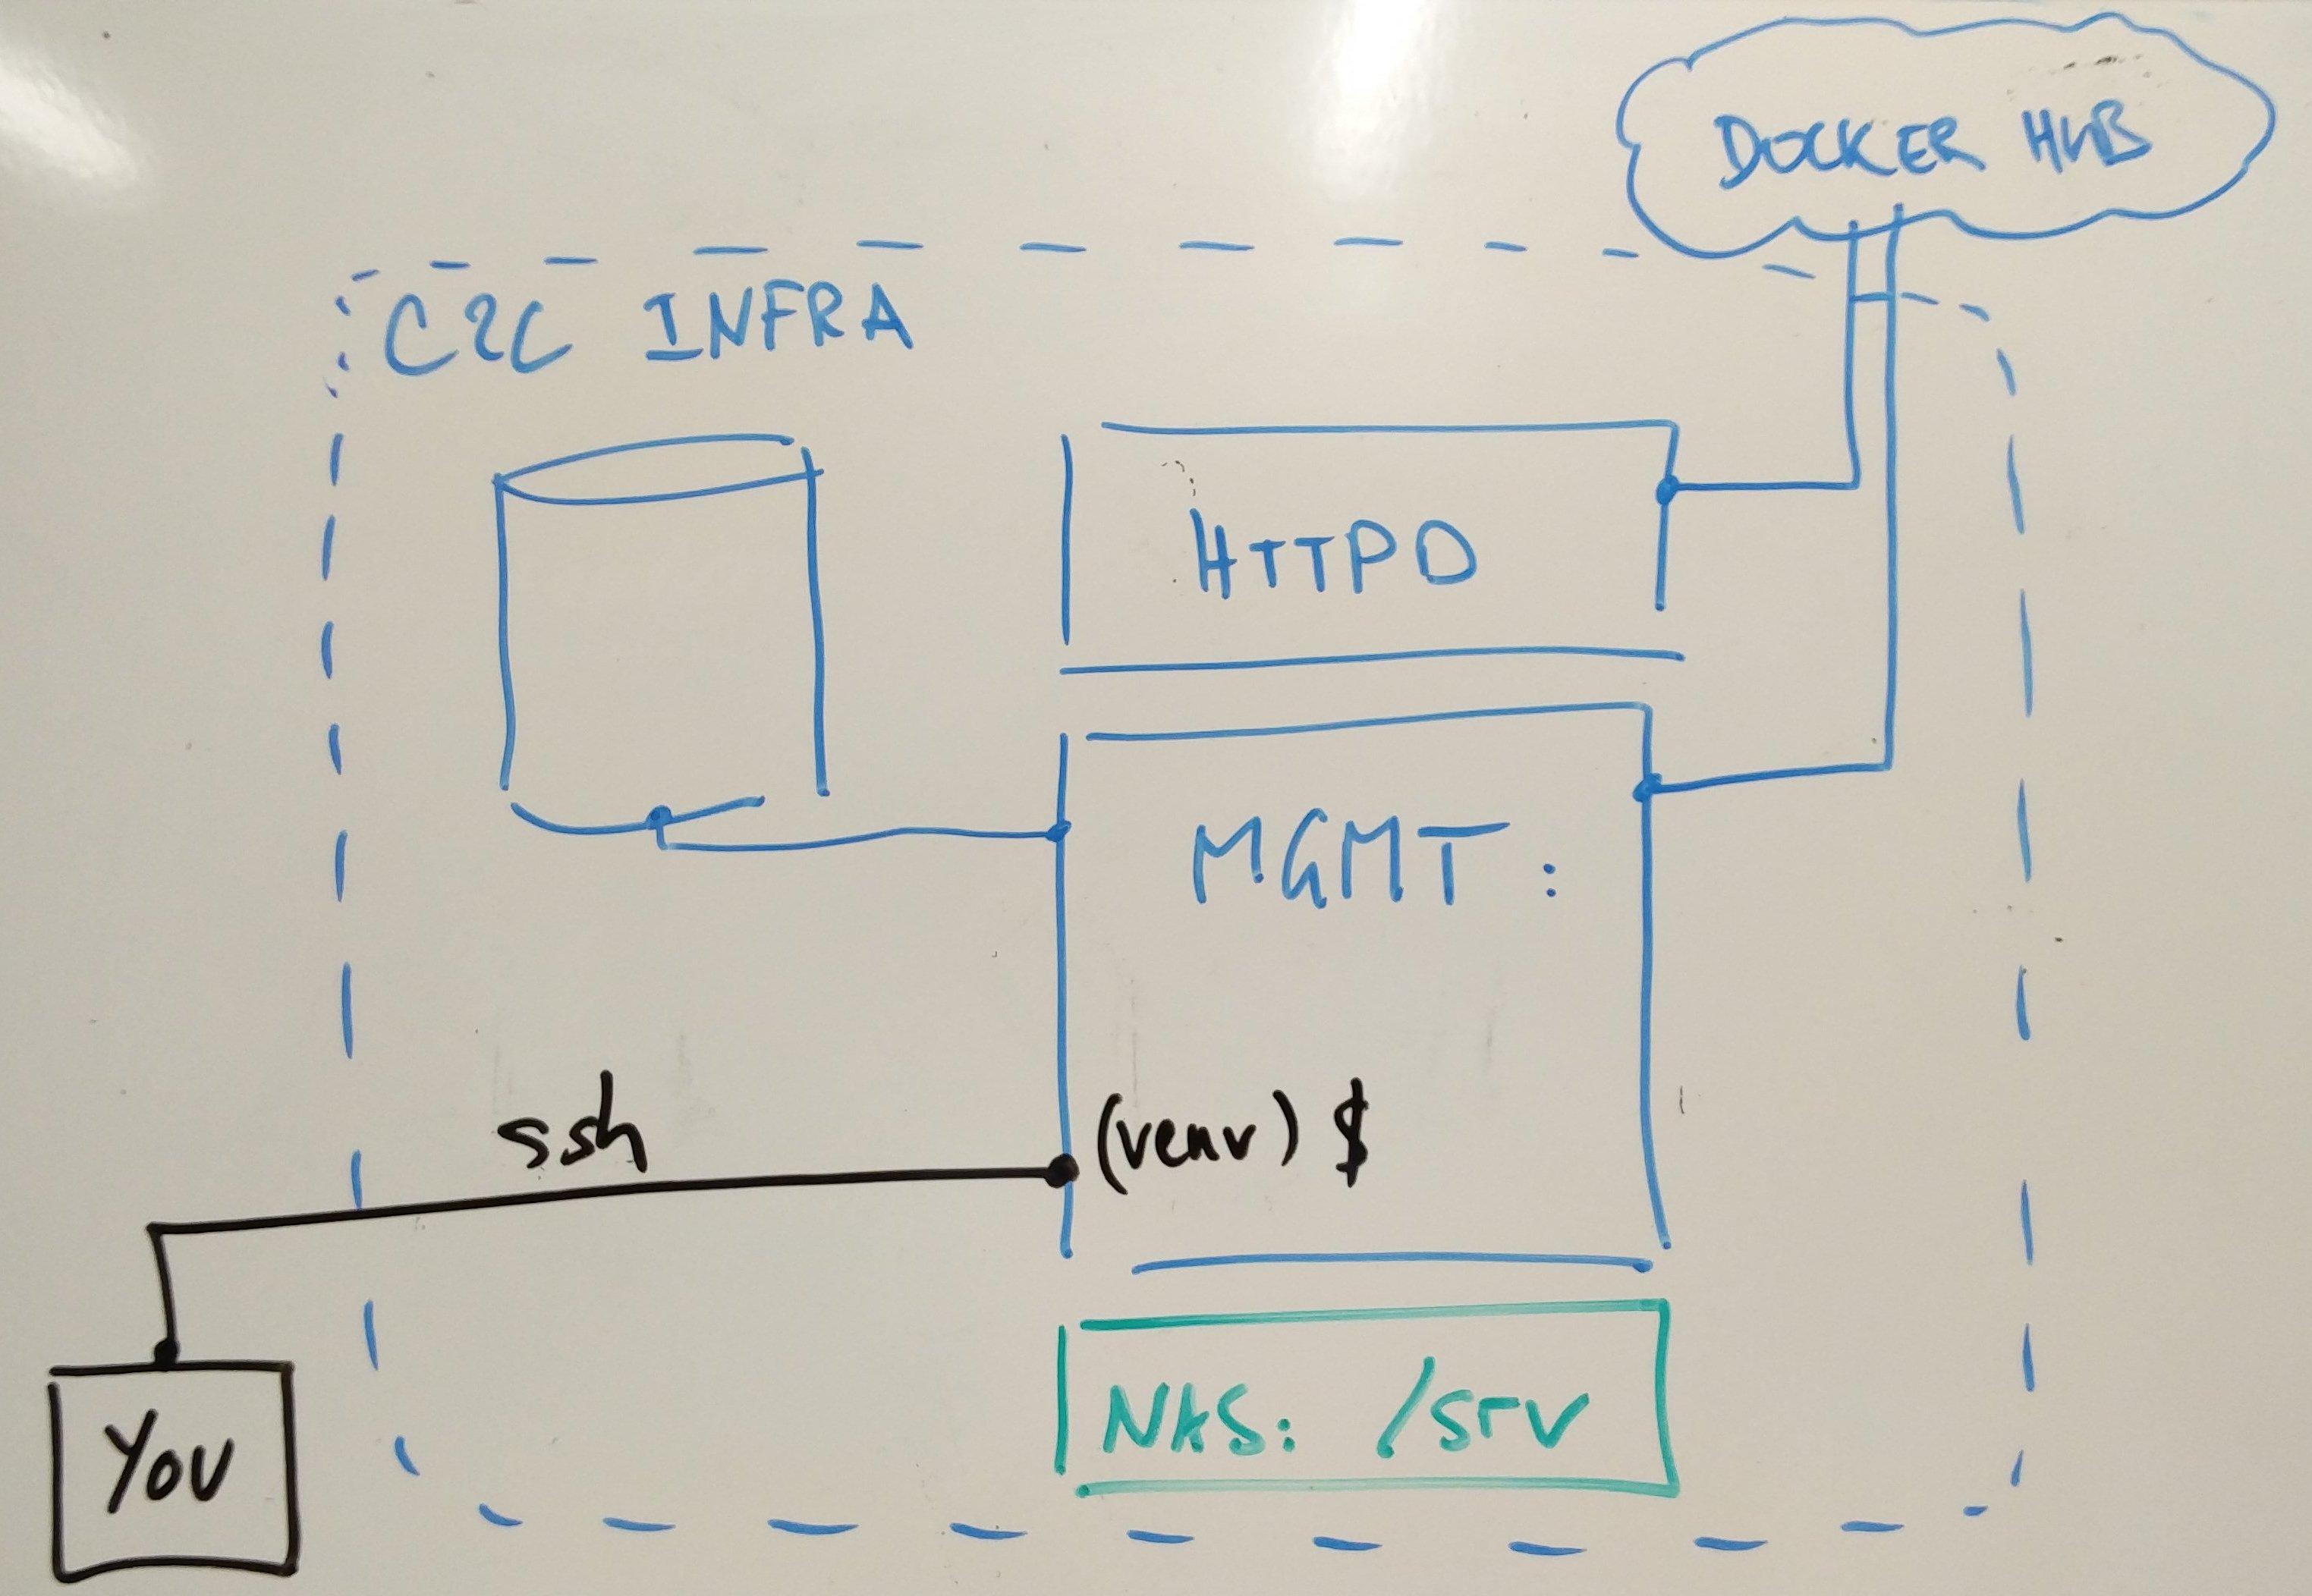 DOCKER HUB
C2C INFRA
HTTPD
MGMT:
ssh
(venv) $
NAS: /srv
YOU